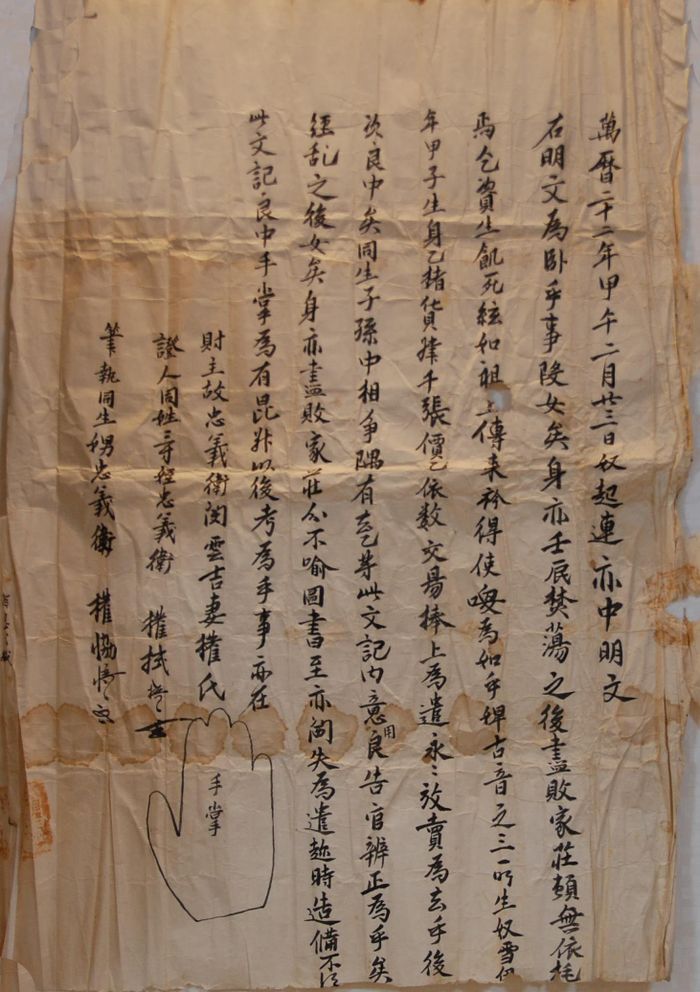 萬曆二十二年甲午二月廿三日奴起連亦中明文
右明文爲臥乎事段女矣身亦壬辰焚蕩之後盡敗家莊頼無依托
爲乞資生飢死絃如祖上傳来衿得使喚爲如乎婢古音之三所生奴雪
年甲子生身乙楮貨肆千張價乙依数交易捧上爲遣永〻放賣爲去乎後
次良中矣同生子孫中相爭隅有去乙等此文記內意用良告官辨正爲乎矣
經乱之後女矣身亦盡敗家莊分不喻圖書至亦閪失爲遣趂時造備不
此文記良中手掌爲有昆幷以後考爲乎事亦在
財主故忠義衛閔雲吉妻權氏
證人同姓寸姪忠義衛 權拭
筆執同生娚忠義衛 權
手掌